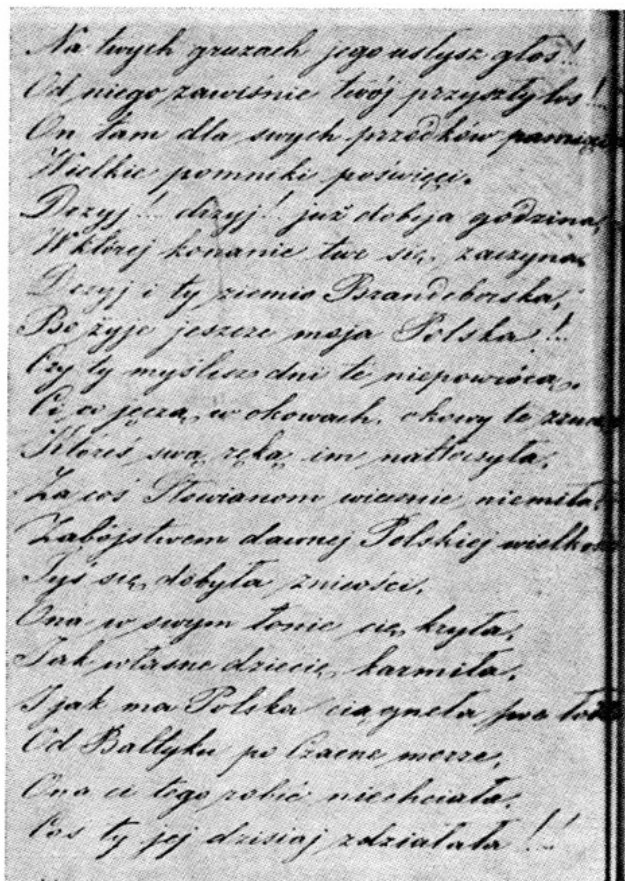 Na twych gruzach jego usłysz głos!
Od niego zawiśnie twój przyszły los!
On tam dla swych przodków
Wielkie pomniki poświęci.
Drzyj!! drzyj!! już dobija godzina,
W której konanie twe się zaczyna
Drzyj i ty ziemio Brandeborska,
Bo żyje jeszcze moja Polska!!
Czy ty myślisz dni te niepowrócą,
Ci co jęczą w okowach, okowy te
Któreś swą ręką im natłoczyła,
Za coś Słowianom wiecznie niemiła,
Zabójstwem dawnej Polskiej
Tyś się dobyła z
Ona w swym łonie cię kryła,
Jak własne dziecię karmiła,
I jak ma Polska ciągnęła swe
Od Baltyku po Czarne morze,
Ona ci tego robić niechciała,
Coś ty jej dzisiaj zdziałała!!